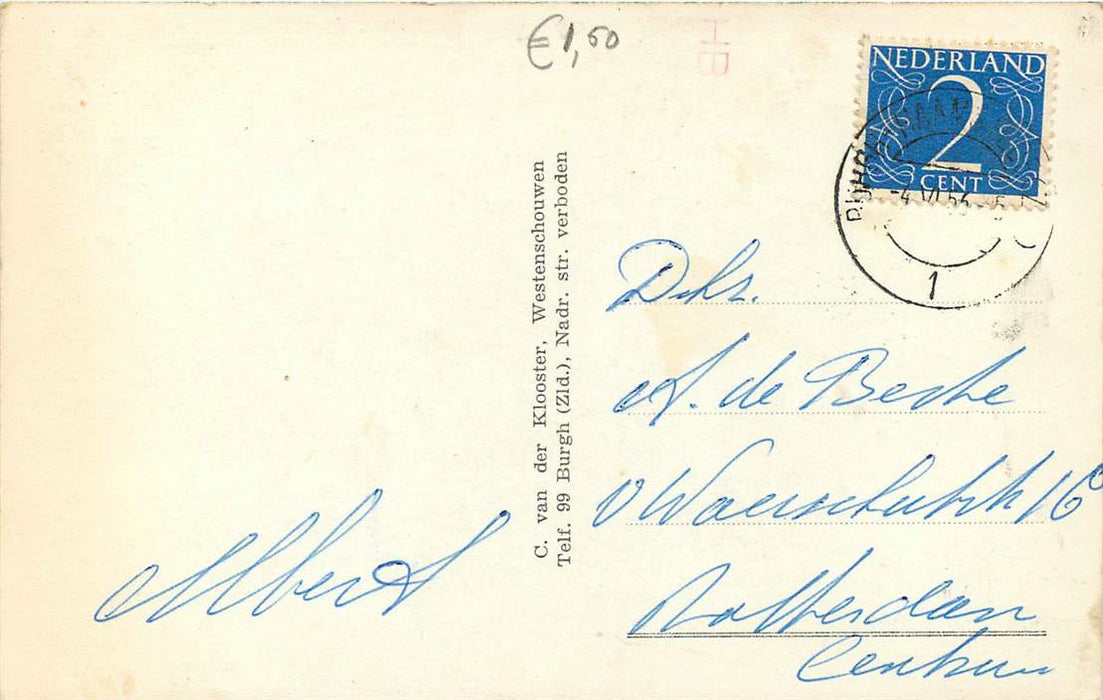 €1,50
HB
NEDERLAND
2
CENT
-4 VI 54
1
C. van der Klooster, Westenschouwen
Telf. 99 Burgh (Zld.), Nadr. str. verboden
A. de Beste
16
Rotterdam
Centrum
Albert